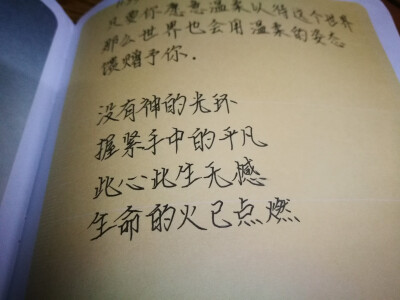 只要你愿意温柔以待这个世界
那么世界也会用温柔的姿态
馈赠予你.
没有神的光环
握紧手中的平凡
此心此生无憾
生命的火已点燃